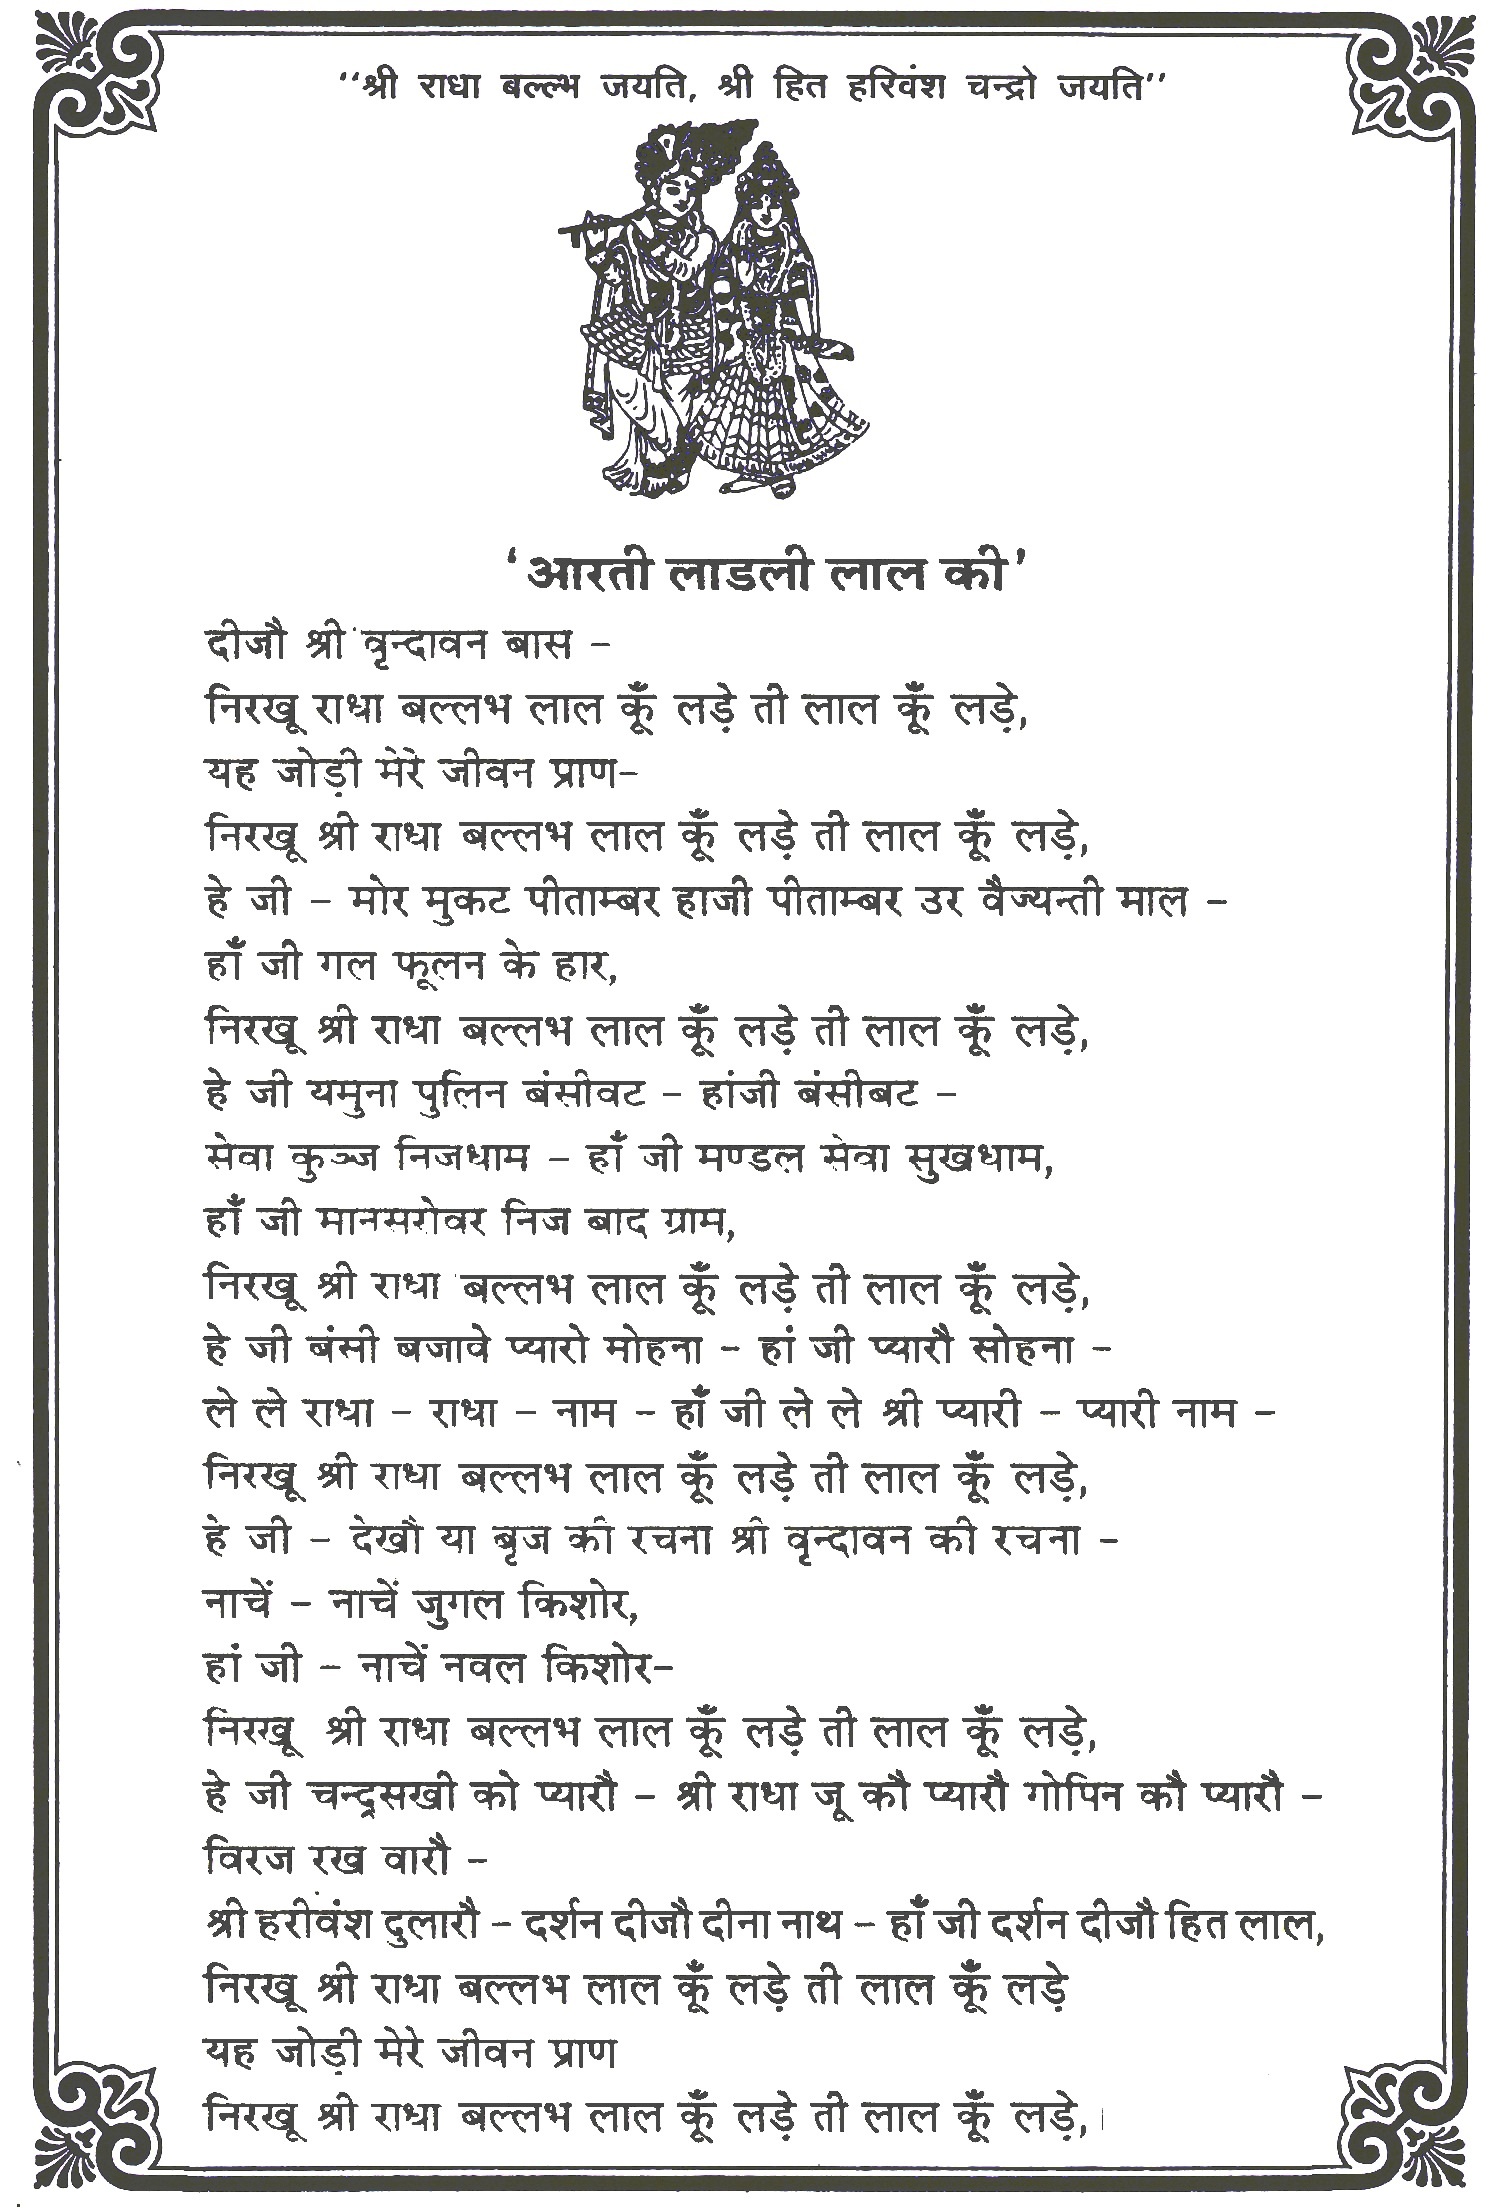 ''श्री राधा बल्ल्भ जयति, श्री हित हरिवंश चन्द्रो जयति''
'आरती लाडली लाल की'
दीजौ श्री वृन्दावन बास –
निरखू राधा बल्लभ लाल कूँ लड़े ती लाल कूँ लड़े,
यह जोड़ी मेरे जीवन प्राण–
निरखू श्री राधा बल्लभ लाल कूँ लड़े ती लाल कूँ लड़े,
हे जी – मोर मुकट पीताम्बर हाजी पीताम्बर उर वैज्यन्ती माल –
हाँ जी गल फूलन के हार,
निरखू श्री राधा बल्लभ लाल कूँ लड़े ती लाल कूँ लड़े,
हे जी यमुना पुलिन बंसीवट – हांजी बंसीबट –
सेवा कुञ्ज निजधाम – हाँ जी मण्डल सेवा सुखधाम,
हाँ जी मानसरोवर निज बाद ग्राम,
निरखू श्री राधा बल्लभ लाल कूँ लड़े ती लाल कूँ लड़े,
हे जी बंसी बजावे प्यारो मोहना – हां जी प्यारौ सोहना –
ले ले राधा – राधा – नाम – हाँ जी ले ले श्री प्यारी – प्यारी नाम –
निरखू श्री राधा बल्लभ लाल कूँ लड़े ती लाल कूँ लड़े,
हे जी – देखौ या बृज की रचना श्री वृन्दावन की रचना –
नाचें – नाचें जुगल किशोर,
हां जी – नाचें नवल किशोर–
निरखू श्री राधा बल्लभ लाल कूँ लड़े ती लाल कूँ लड़े,
हे जी चन्द्रसखी को प्यारौ – श्री राधा जू कौ प्यारौ गोपिन कौ प्यारौ –
विरज रख वारौ –
श्री हरीवंश दुलारौ – दर्शन दीजौ दीना नाथ – हाँ जी दर्शन दीजौ हित लाल,
निरखू श्री राधा बल्लभ लाल कूँ लड़े ती लाल कूँ लड़े
यह जोड़ी मेरे जीवन प्राण
निरखू श्री राधा बल्लभ लाल कूँ लड़े ती लाल कूँ लड़े,